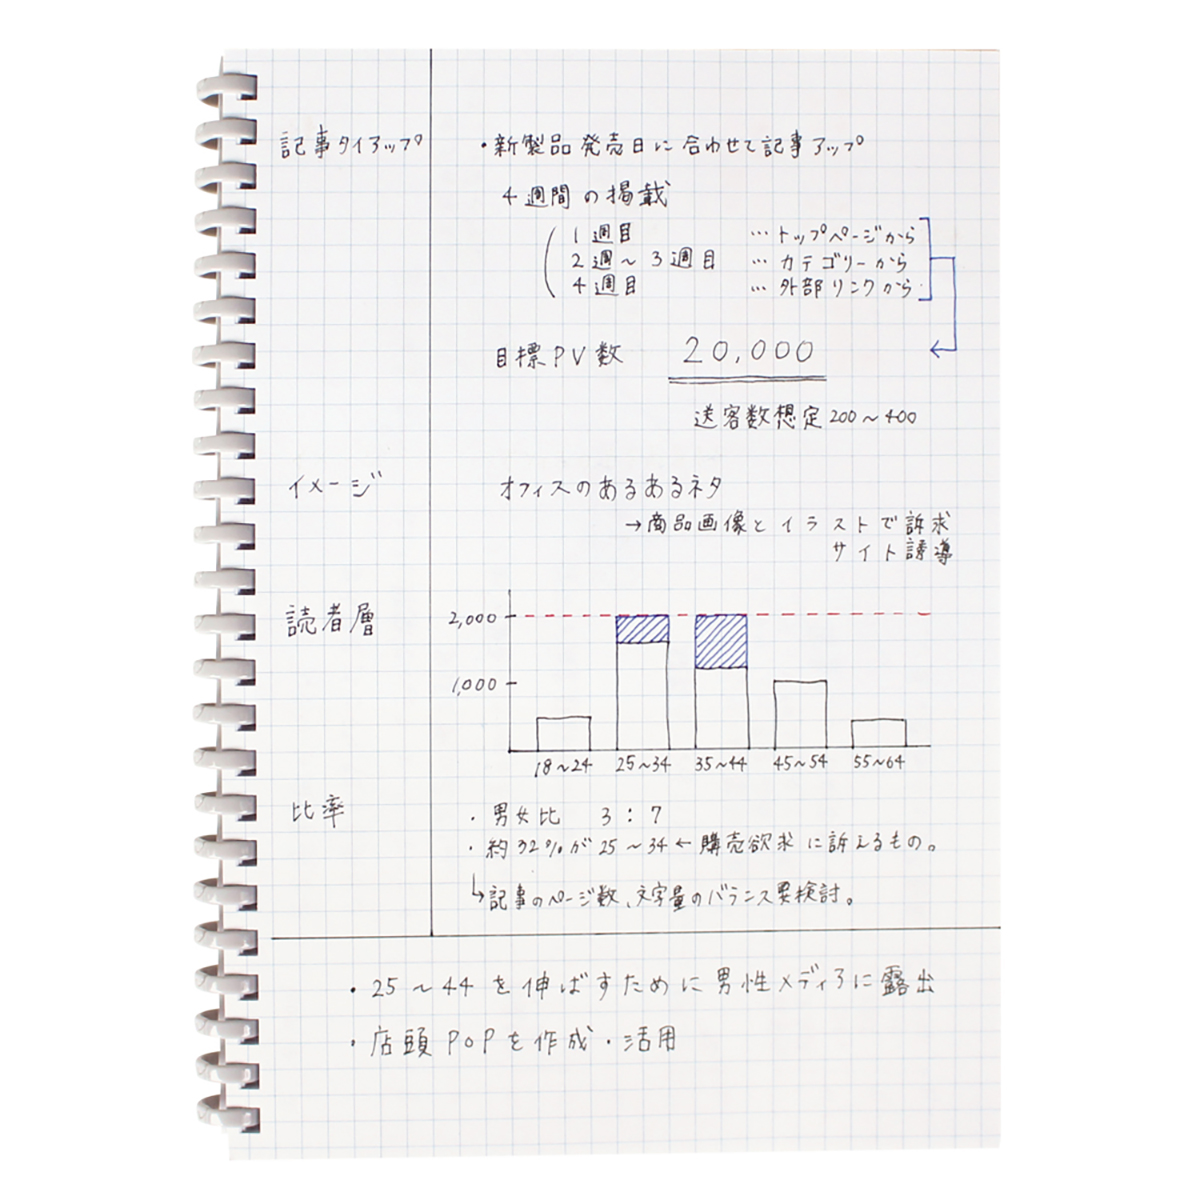 記事タイアップ ・新製品発売日に合わせて記事アップ
4週間の掲載
1週目 … トップページから
2週〜3週目 … カテゴリーから
4週目 … 外部リンクから
目標PV数 20,000
送客数想定200〜400
イメージ オフィスのあるあるネタ
→商品画像とイラストで訴求
サイト誘導
読者層
2,000
1,000
18〜24 25〜34 35〜44 45〜54 55〜64
比率 ・男女比 3:7
・約32%が25〜34←購売欲求に訴えるもの。
↳記事のページ数、文字量のバランス要検討。
・25〜44を伸ばすために男性メディアに露出
・店頭POPを作成・活用